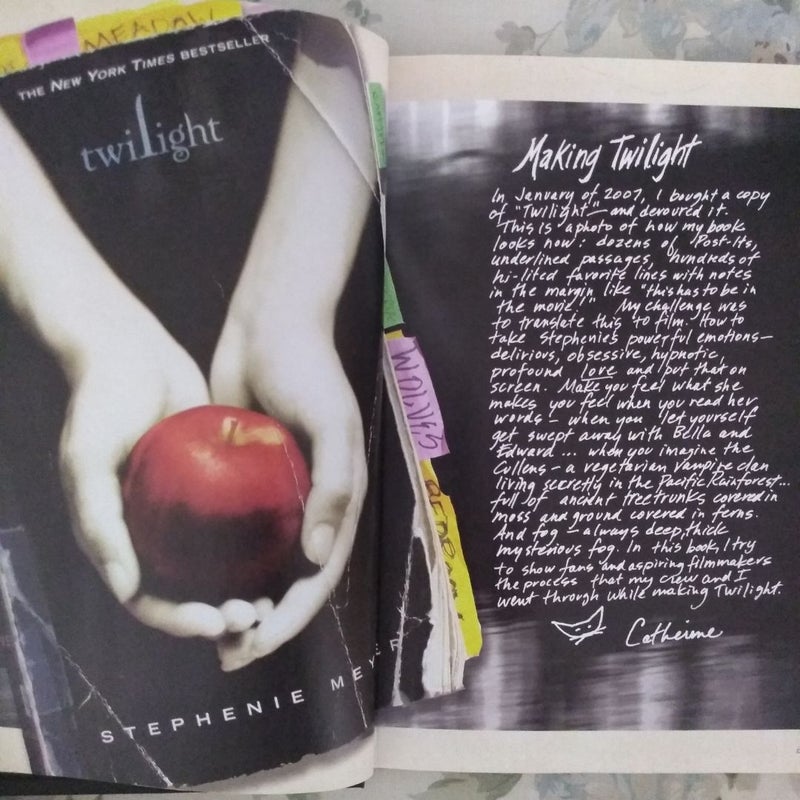 MEADOW
THE NEW YORK TIMES BESTSELLER
twilight
WOLVES
STEPHENIE MEYER
Making Twilight
In January of 2007, I bought a copy
of "Twilight"—and devoured it.
This is a photo of how my book
looks now: dozens of Post-Its,
underlined passages, hundreds of
hi-lited favorite lines with notes
in the margin like "this has to be in
the movie!" My challenge was
to translate this to film. How to
take Stephenie's powerful emotions—
delirious, obsessive, hypnotic,
profound love and put that on
screen. Make you feel what she
makes you feel when you read her
words — when you let yourself
get swept away with Bella and
Edward... when you imagine the
Cullens — a vegetarian vampire clan
living secretly in the Pacific Rainforest...
full of ancient tree trunks covered in
moss and ground covered in ferns.
And fog — always deep, thick
mysterious fog. In this book, I try
to show fans and aspiring filmmakers
the process that my crew and I
went through while making Twilight.
Catherine